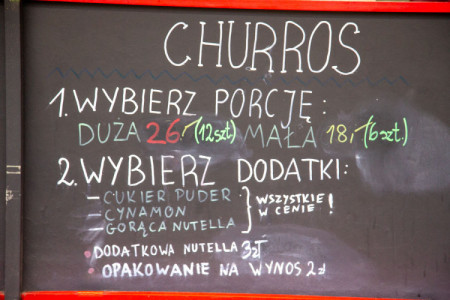 CHURROS
1. WYBIERZ PORCJĘ:
DUŻA 26.- (12szt) MAŁA 18,- (6 szt.)
2. WYBIERZ DODATKI:
- CUKIER PUDER
- CYNAMON
- GORĄCA NUTELLA
WSZYSTKIE
W CENIE!
• DODATKOWA NUTELLA 3zł
• OPAKOWANIE NA WYNOS 2zł